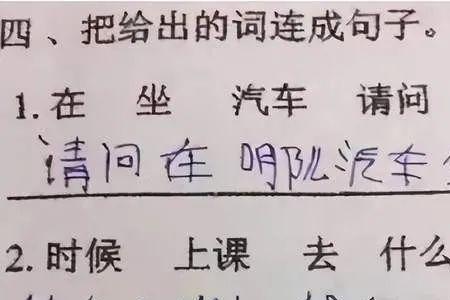 四、把给出的词连成句子。
1.在 坐 汽车 请问
请问在 汽车
2.时候 上课 去 什么